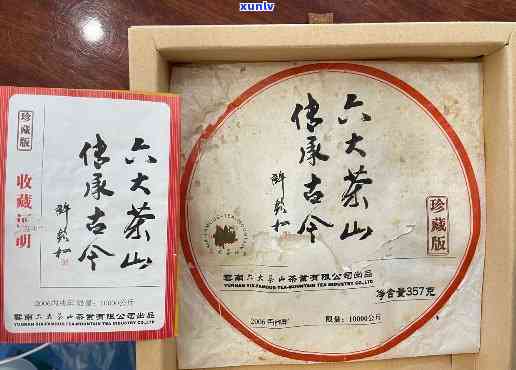 xunlv
珍藏版
六大茶山
传承古今
收藏证明
2006丙戌年 限量：10000公斤
雲南六大茶山茶業有限公司出品
YUNNAN SIX-FAMOUS-TEA-MOUNTAIN TEA INDUSTRY CO.,LTD
六大茶山
传承古今
珍藏版
雲南六大茶山茶業有限公司出品
YUNNAN SIX-FAMOUS-TEA-MOUNTAIN TEA INDUSTRY CO.,LTD
净含量357克
2006 丙戌年
限量：10000公斤